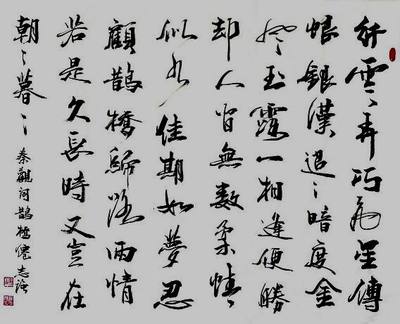 纤雲弄巧飛星傳
恨銀漢迢〻暗度金
風玉露一相逢便勝
却人间無數柔情
似水佳期如夢忍
顧鵲橋歸路兩情
若是久長時又豈在
朝〻暮〻
秦觀詞鵲橋仙 志